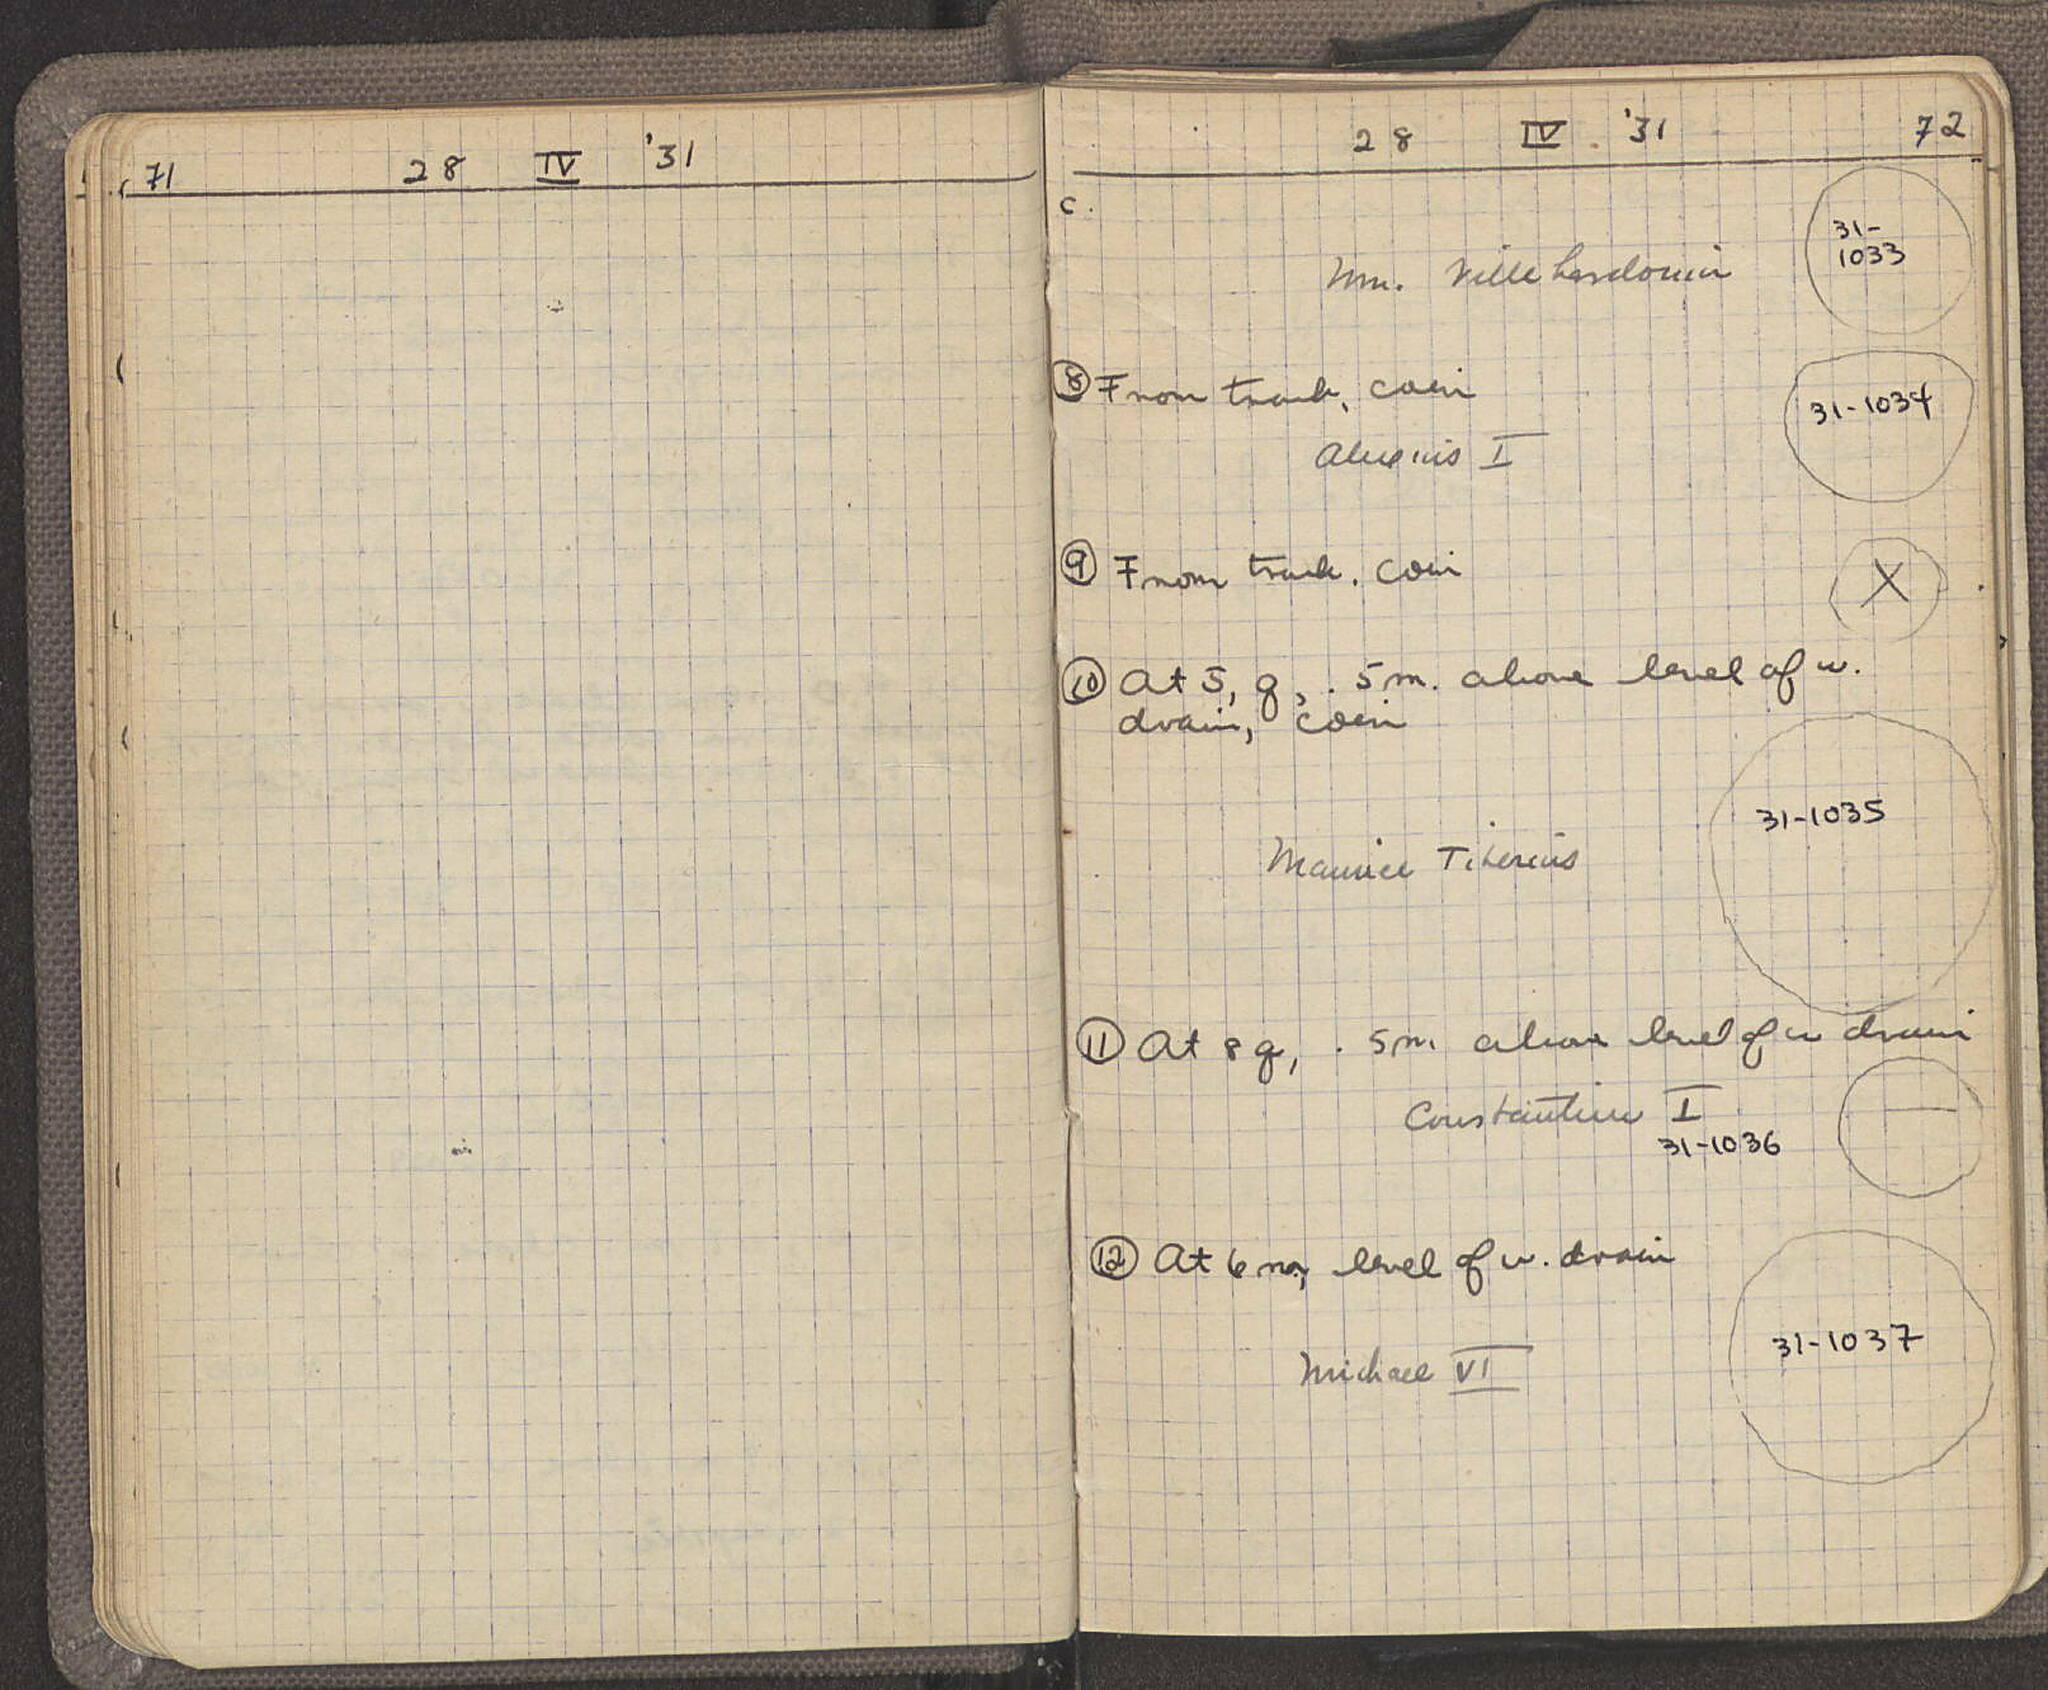 71 28 IV '31
28 IV '31 72
c.
31-
1033
Wm. Villehardouin
8 From track, coin
31-1034
Alexius I
9 From track, coin
X
10 At 5, q, .5m. above level of w.
drain, coin
31-1035
Maurice Tiberius
11 At 8 q, .5m. above level of w drain
Constantine I
31-1036
12 At 6 m, level of w. drain
31-1037
Michael VI